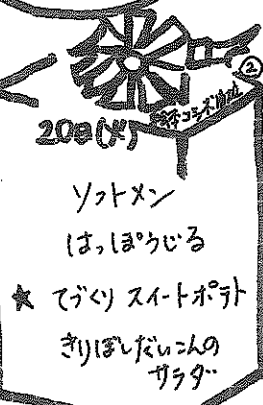 ②
20日(火)
ソフトメン
はっぽうじる
★ てづくり スイートポテト
きりぼしだいこんの
サラダ